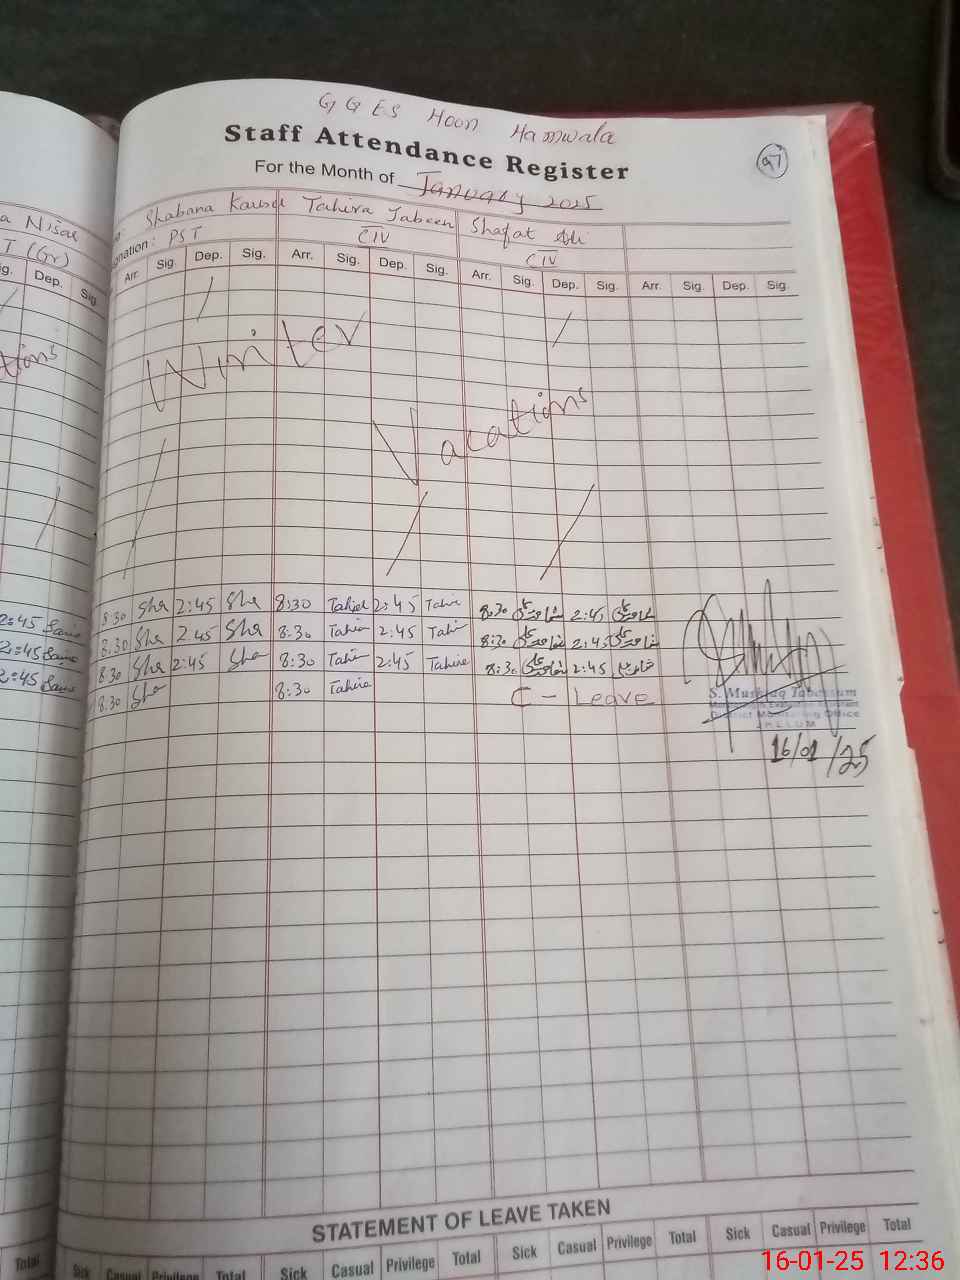 G G E S Hoon Hamwala
Staff Attendance Register
97
For the Month of January 2025
a Nisar Shabana Kausar Tahira Jabeen Shafat Ali
T (Gr) nation: PST CIV CIV
ig. Dep. Sig. Arr. Sig. Dep. Sig. Arr. Sig. Dep. Sig. Arr. Sig. Dep. Sig. Arr. Sig. Dep. Sig.
Winter
tions
Vacations
2:45 Saima 8:30 Sha 2:45 Sha 8:30 Tahira 2:45 Tahira 8:30 شفاعت علی 2:45 شفاعت علی
2:45 Saima 8:30 Sha 2:45 Sha 8:30 Tahira 2:45 Tahira 8:30 شفاعت علی 2:45 شفاعت علی
2:45 Saima 8:30 Sha 2:45 Sha 8:30 Tahira 2:45 Tahira 8:30 شفاعت علی 2:45
8:30 Sha 8:30 Tahira C - Leave
S. Mushtaq Tabassum
Monitoring & Evaluation Assistant
District Monitoring Office
JHELUM
16/01/25
STATEMENT OF LEAVE TAKEN
Total Sick Casual Privilege Total Sick Casual Privilege Total Sick Casual Privilege Total Sick Casual Privilege Total
16-01-25 12:36